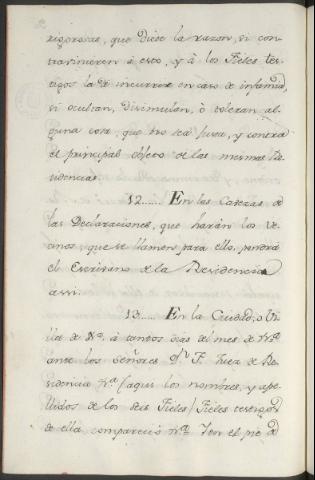 rigorosas, que dicte la razon, si con
travinieren á esto, y á los Fieles tes
tigos la de incurrir en caso de infamia,
si ocultan, disimulan, ó toleran al-
guna cosa, que no sea justa, y contra
el principal objeto de las mismas Re
sidencias.
12...... En las Cavezas de
las Declaraciones, que harán los Ve
cinos, que se llamen para ello, pondrá
el Escrivano de la Residencia
asi.
13..... En la Ciudad, o Vi
lla de N.ª á tantos dias del mes de N.ª
ante los Señores F. Juez de Re
sidencia N.ª (aqui los nombres, y ape
llidos de los seis Fieles) Fieles testigos
de ella compareció N.ª Y en el pie de